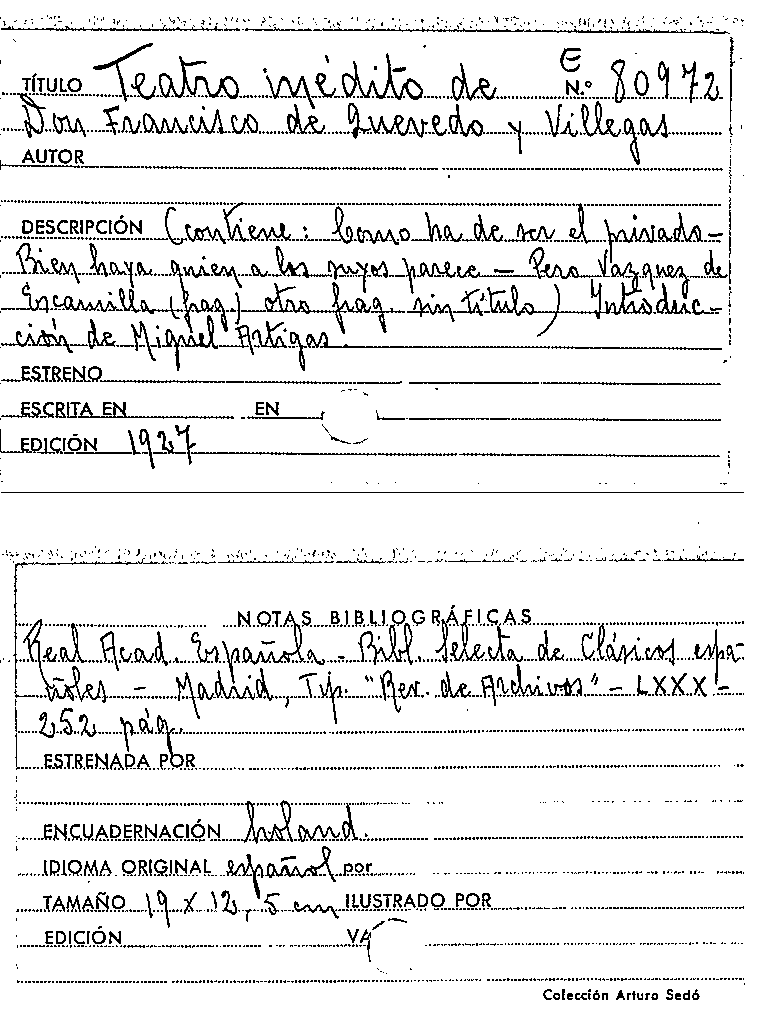 E
TÍTULO Teatro inédito de N.º 80972
Don Francisco de Quevedo y Villegas
AUTOR
DESCRIPCIÓN (contiene: Como ha de ser el privado-
Bien haya quien a los suyos parece - Pero Vázquez de
Escamilla (frag.) otro frag. sin título) Introduc-
ción de Miguel Artigas.
ESTRENO
ESCRITA EN EN
EDICIÓN 1927
NOTAS BIBLIOGRÁFICAS
Real Acad. Española - Bibl. Selecta de Clásicos espa-
ñoles - Madrid, Tip. "Rev. de Archivos" - LXXX -
252 pág.
ESTRENADA POR
ENCUADERNACIÓN holand.
IDIOMA ORIGINAL español por
TAMAÑO 19 x 12,5 cm ILUSTRADO POR
EDICIÓN VA
Colección Arturo Sedó